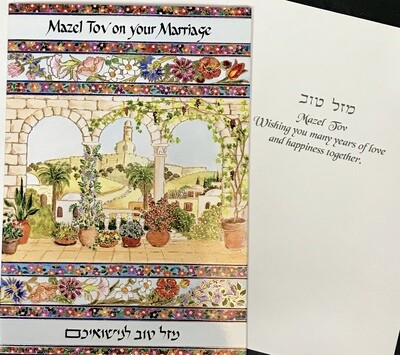 Mazel Tov on your Marriage
מזל טוב לנישואיכם
מזל טוב
Mazel Tov
Wishing you many years of love
and happiness together.